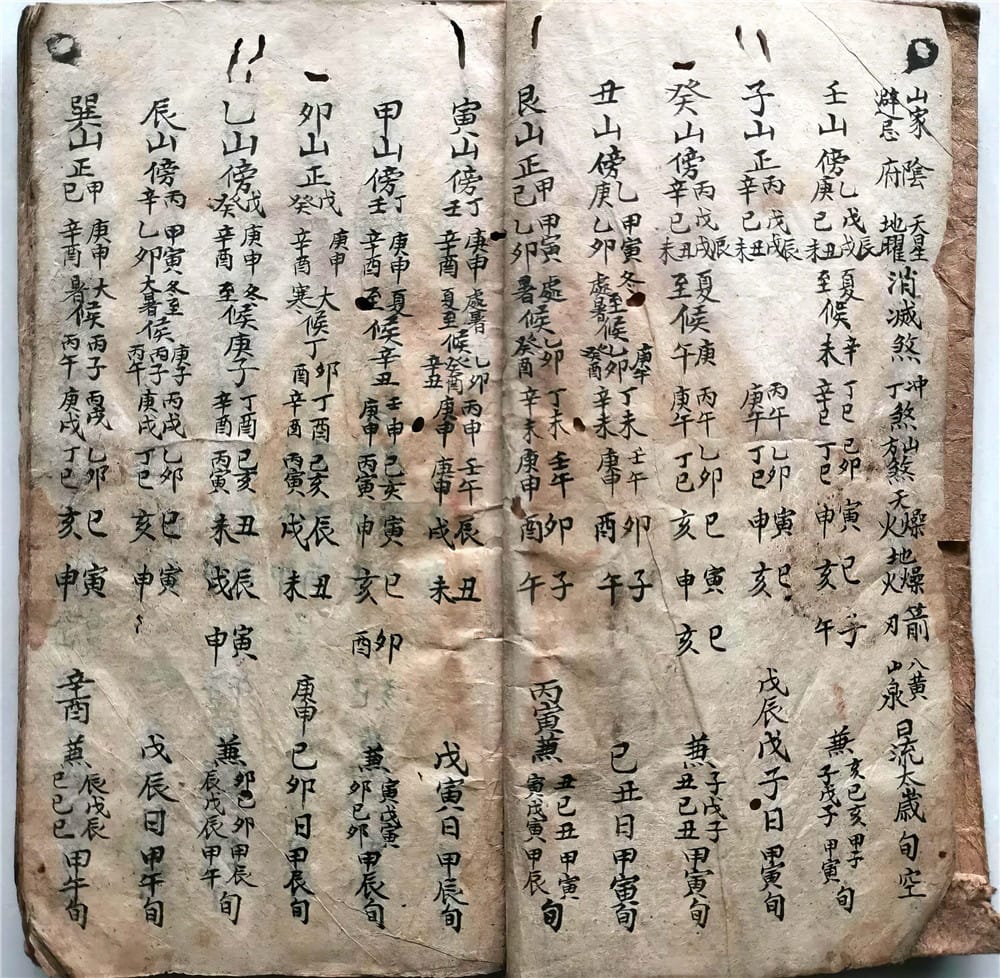 山家避忌 陰府 天星地曜 消滅煞 冲丁煞 山方煞 天燥火 地燥火 箭刃 八黄山泉 日流太歲 旬空
壬山傍 乙庚 戊戌辰己丑未 夏至候未 辛 丁巳辛巳 己卯丁巳 寅申 巳亥 子午 兼亥己亥子戊子 甲子甲寅旬
子山正 丙辛 戊戌辰己丑未 丙午庚午 乙卯丁巳 寅申 巳亥 戊辰 戊子日 甲寅旬
癸山傍 丙辛 戊戌辰己丑未 夏至候午 庚 丙午庚午 乙卯丁巳 巳亥 寅申 巳亥 兼子戊子丑己丑 甲寅旬
丑山傍 乙庚 甲寅乙卯 冬至處暑候乙卯癸酉 庚午 丁未辛未 壬午庚申 卯酉 子午 己丑日 甲寅旬
艮山正 甲己 甲寅乙卯 處暑候乙卯癸酉 丁未辛未 壬午庚申 卯酉 子午 丙寅 兼丑己丑寅戊寅 甲寅甲辰旬
寅山傍 丁壬 庚申辛酉 處暑夏至候乙卯癸酉辛丑 丙申庚申 壬午庚申 辰戌 丑未 戊寅日 甲辰旬
甲山傍 丁壬 庚申辛酉 夏至候辛丑 壬申庚申 己亥丙寅 寅申 巳亥 卯酉 兼寅戊寅卯己卯 甲辰旬
卯山正 戊癸 庚申辛酉 大寒候丁卯酉 丁酉辛酉 己亥丙寅 辰戌 丑未 庚申 己卯日 甲辰旬
乙山傍 戊癸 庚申辛酉 冬至候庚子 丁酉辛酉 己亥丙寅 丑未 辰戌 寅申 兼卯己卯辰戊辰 甲辰甲午旬
辰山傍 丙辛 甲寅乙卯 冬至大暑候丙子丙午 庚子 丙戌庚戌 乙卯丁巳 巳亥 寅申 戊辰日 甲午旬
巽山正 甲己 庚申辛酉 大暑候丙子丙午 丙戌庚戌 乙卯丁巳 巳亥 寅申 辛酉 兼辰戊辰巳己巳 甲午旬